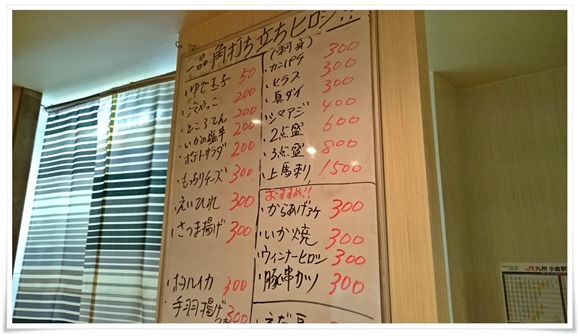 一品 角打ち立ちヒロシ!!
・ゆで玉子 50
・冷やっこ 200
・ところてん 200
・いかの塩辛 200
・ポテトサラダ 200
・もっちりチーズ 300
・えいひれ 300
・さつま揚げ 300
・ホタルイカ 300
手羽揚げ 300
(刺身)
・カンパチ 300
・ヒラス 300
・真ダイ 300
・シマアジ 400
・2点盛 600
・3点盛 800
・上馬刺 1500
おすすめ!!
・からあげ3ヶ 300
・いか焼 300
・ウィンナーヒロシ 300
・豚串カツ 300
・えだ豆
JR九州 小倉駅